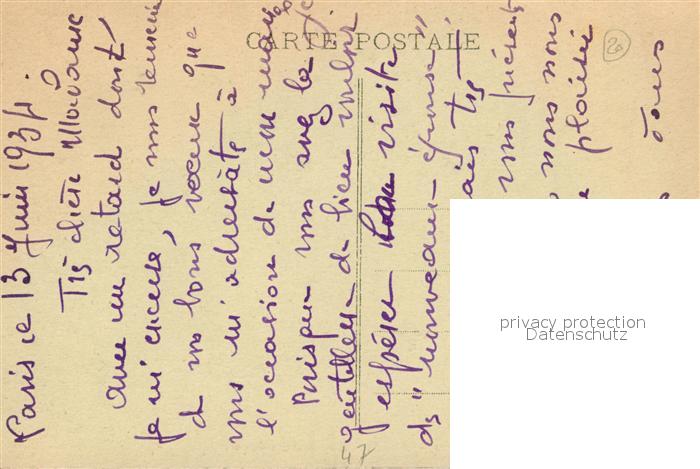 CARTE POSTALE
20
Paris le 13 Juin 1934.
Très chère Madame
Avec un retard dont
je m'excuse, je vous remercie
de vos bons voeux que
vous m'adressâtes à
l'occasion de mon mariage
Puisque vous avez la
gentillesse de bien vouloir
espérer notre visite
de "nouveaux-époux"
très
vous présent
nous nous
plaisir
tous
47
privacy protection
Datenschutz